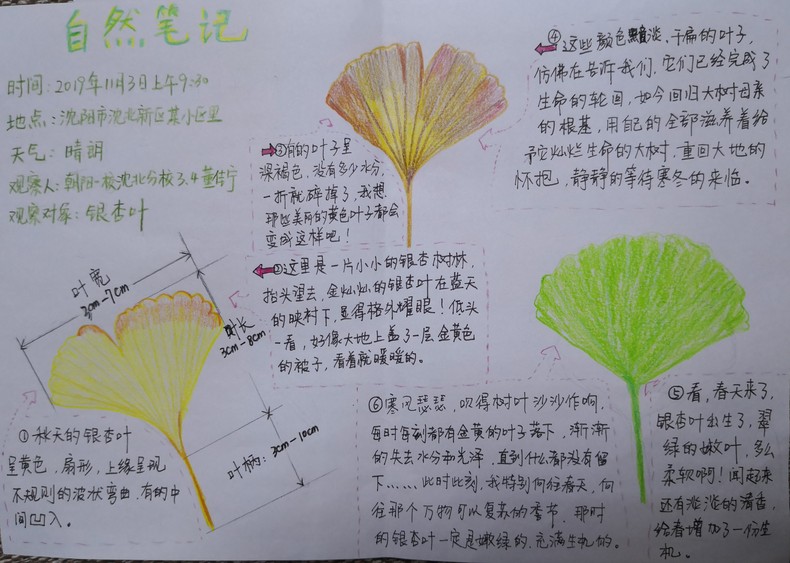 自然笔记
时间：2019年11月3日上午9:30
地点：沈阳市沈北新区某小区里
天气：晴朗
观察人：朝阳一校沈北分校3.4董佳宁
观察对象：银杏叶
叶宽
3cm-7cm
叶长
3cm-8cm
叶柄：3cm-10cm
①秋天的银杏叶
呈黄色，扇形，上缘呈现
不规则的波状弯曲，有的中
间凹入。
②这里是一片小小的银杏树林，
抬头望去，金灿灿的银杏叶在蓝天
的映村下，显得格外耀眼！低头
一看，好像大地上盖了一层金黄色
的被子，看着就暖暖的。
③有的叶子呈
深褐色，没有多少水分，
一折就碎掉了，我想
那些美丽的黄色叶子都会
变成这样吧！
④这些颜色黯淡，干扁的叶子，
仿佛在告诉我们，它们已经完成了
生命的轮回，如今回归大树母亲
的根基，用自己的全部滋养着给
予它灿烂生命的大树，重回大地的
怀抱，静静的等待寒冬的来临。
⑤看，春天来了，
银杏叶出生了，翠
绿的嫩叶，多么
柔软啊！闻起来
还有淡淡的清香，
给春增加了一份生
机。
⑥寒风瑟瑟，吹得树叶沙沙作响，
每时每刻都有金黄的叶子落下，渐渐
的失去水分和光泽，直到什么都没有留
下……此时此刻，我特别向往春天，向
往那个万物可以复苏的季节，那时
的银杏叶一定是嫩绿的，充满生机的。